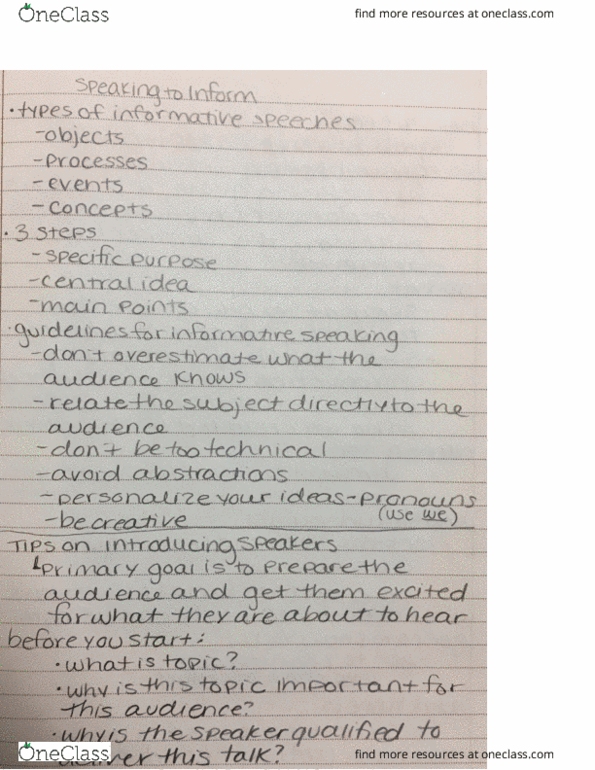 OneClass
find more resources at oneclass.com
Speaking to Inform
• types of informative speeches
-objects
-Processes
-events
-concepts
• 3 steps
-specific purpose
-central idea
-main points
• guidelines for informative speaking
-don't overestimate what the
audience knows
-relate the subject directly to the
audience
-don't be too technical
-avoid abstractions
-personalize your ideas-pronouns
-be creative (use we)
Tips on introducing speakers
↳primary goal is to prepare the
audience and get them excited
for what they are about to hear
before you start:
• what is topic?
• why is this topic important for
this audience?
• why is the speaker qualified to
this talk?
OneClass
find more resources at oneclass.com